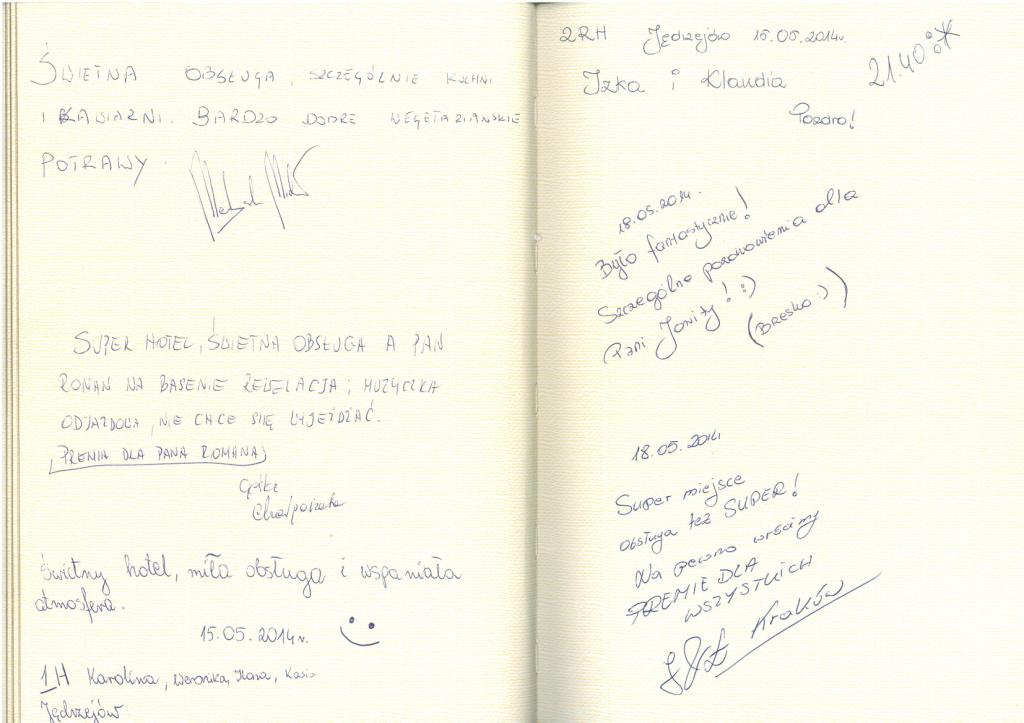 ŚWIETNA OBSŁUGA, SZCZEGÓLNIE KUCHNI
I KAWIARNI. BARDZO DOBRE WEGETARIAŃSKIE
POTRAWY.
SUPER HOTEL, ŚWIETNA OBSŁUGA A PAN
ROMAN NA BASENIE REWELACJA; MUZYCZKA
ODJAZDOWA, NIE CHCE SIĘ WYJEŻDŻAĆ.
PREMIA DLA PANA ROMANA
Świetny hotel, miła obsługa i wspaniała
atmosfera.
15.05.2014r.
1H Karolina, Weronika, Ilona, Kasia
Jędrzejów
2RH Jędrzejów 15.05.2014r.
21.40
Izka i Klaudia
Pozdro!
18.05.2014.
Było fantastycznie!
Szczególne pozdrowienia dla
Pani Jonity! :)
(BRESKO :))
18.05.2014
Super miejsce
Obsługa też SUPER!
Na pewno wrócimy
PREMIE DLA
WSZYSTKICH
Kraków